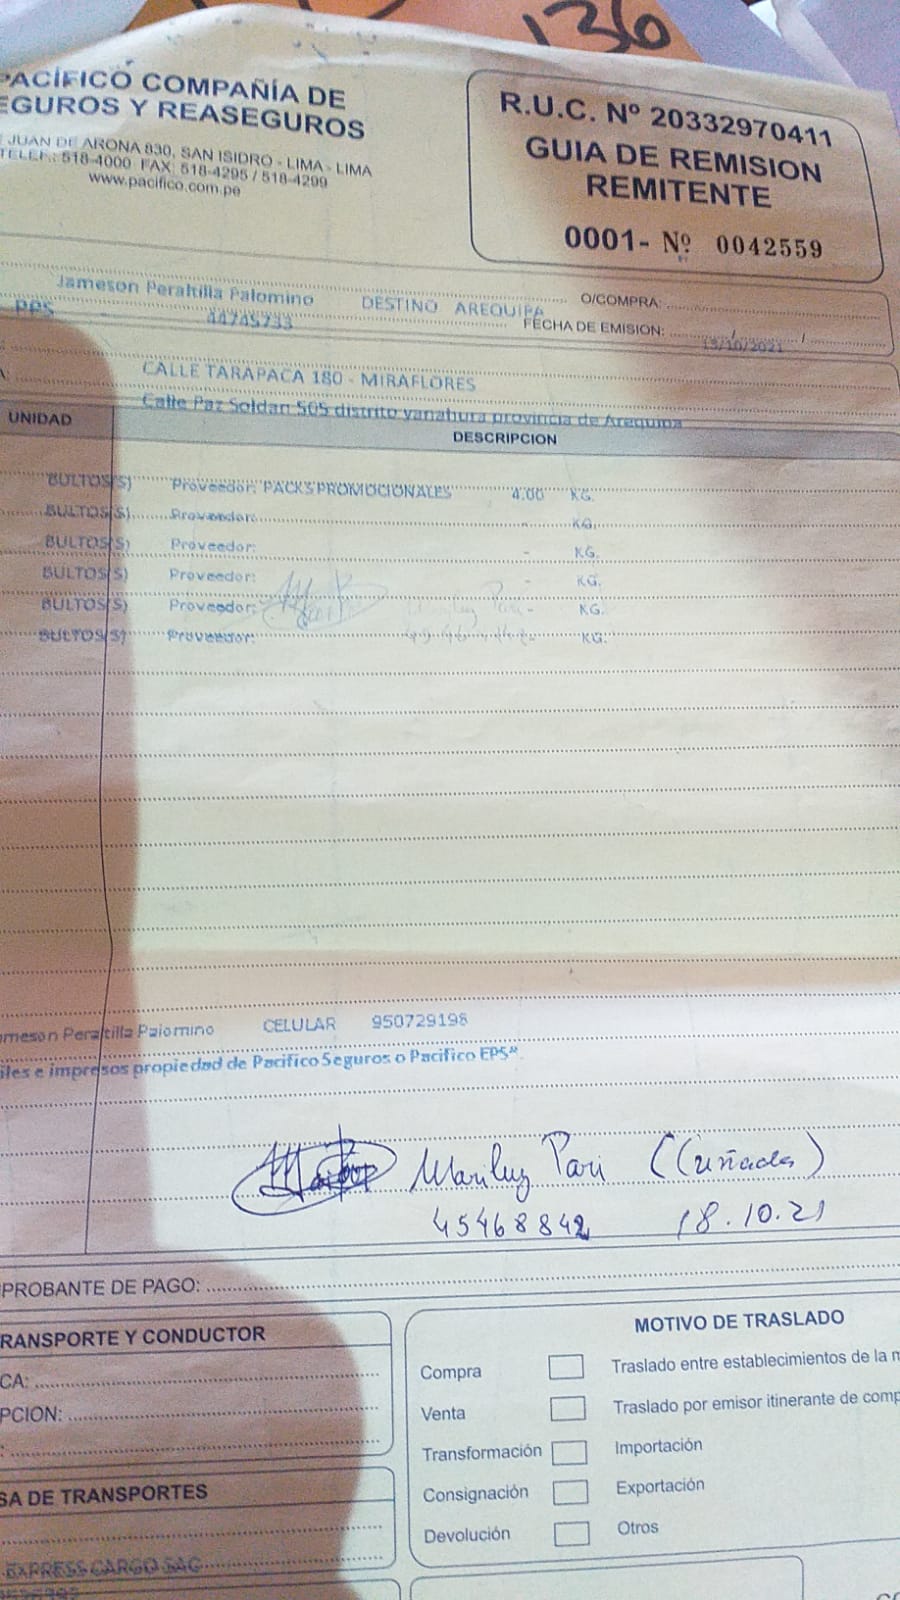 136
PACÍFICO COMPAÑÍA DE
EGUROS Y REASEGUROS
JUAN DE ARONA 830, SAN ISIDRO - LIMA - LIMA
TELEF.: 518-4000 FAX: 518-4295 / 518-4299
www.pacifico.com.pe
R.U.C. Nº 20332970411
GUIA DE REMISION
REMITENTE
0001- Nº 0042559
Jameson Peraltilla Palomino DESTINO AREQUIPA O/COMPRA:
PPS 44745733 FECHA DE EMISION: 15/10/2021
CALLE TARAPACA 180 - MIRAFLORES
Calle Paz Soldan 505 distrito yanahura provincia de Arequipa
UNIDAD DESCRIPCION
BULTOS(S) Proveedor: PACKS PROMOCIONALES 4.00 KG.
BULTOS(S) Proveedor: - KG.
BULTOS(S) Proveedor: - KG.
BULTOS(S) Proveedor: - KG.
BULTOS(S) Proveedor: - KG.
BULTOS(S) Proveedor: - KG.
ameson Peraltilla Palomino CELULAR 950729198
iles e impresos propiedad de Pacifico Seguros o Pacifico EPS".
Mariluz Pari (Cuñada)
45468842 18.10.21
PROBANTE DE PAGO:
RANSPORTE Y CONDUCTOR
CA:
PCION:
MOTIVO DE TRASLADO
Compra Traslado entre establecimientos de la m
Venta Traslado por emisor itinerante de comp
Transformación Importación
Consignación Exportación
Devolución Otros
SA DE TRANSPORTES
EXPRESS CARGO SAC